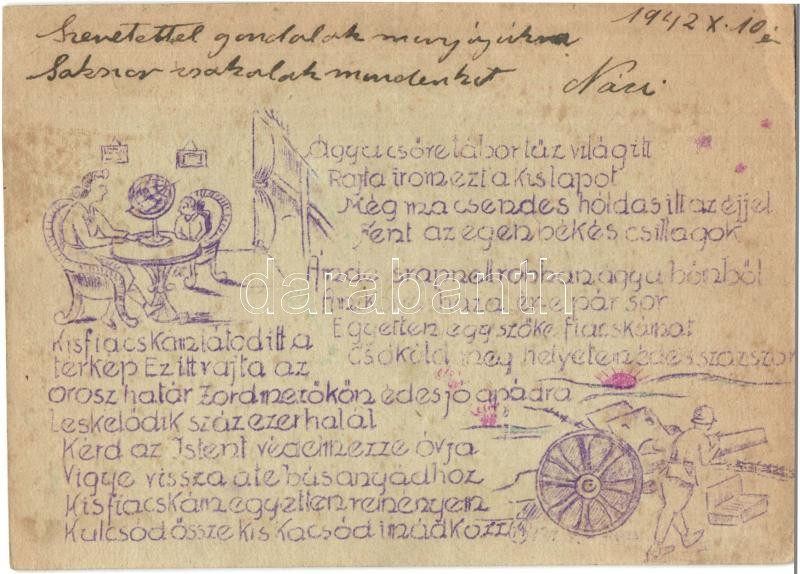 1942 X. 10 én
Szeretettel gondolak
Sokszor csokolak mindenkit Náci
Ágyu csőre tábortűz világitt
Rajta irom ezt a kis lapot
Még ma csendes holdas itt az éjjel
Fent az égen békés csillagok
srapnel robban ágyu
haza pár sor
Egyetlen egy szőke fiacskámat
Csókold meg helyetem édes százszor
Kisfiacskám látod itt a
térkép Ez itt rajta az
orosz határ Zord mezőkön édes jó apádra
Leskelődik száz ezer halál
Kérd az Istent védelmezze óvja
Vigye vissza a te bús anyádhoz
Kisfiacskám egyetlen reményem
Kulcsód össze kis Kacsód imádkozz
darabanth